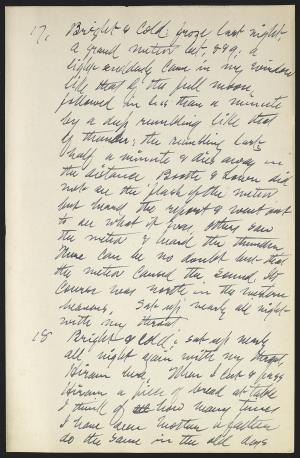 17. Bright & Cold; froze last night
a grand meteor last, 889; a
light suddenly came in my window
like that of the full moon,
followed in less than a minute
by a deep rumbling like that
of thunder; the rumbling lasted
half a minute & died away in
the distance. Booth & Lown did
not see the flash of the meteor
but heard the report & went out
to see what it was, others saw
the meteor & heard the thunder.
There can be no doubt but that
the meteor caused the sound, its
course was north in the western
heavens. Sat up nearly all night
with my throat.
18 Bright & Cold; sat up nearly
all night again with my throat,
Hiram here. When I cut & pass
Hiram a piece of bread at table
I think of how many times
I have seen mother & father
do the same in the old days